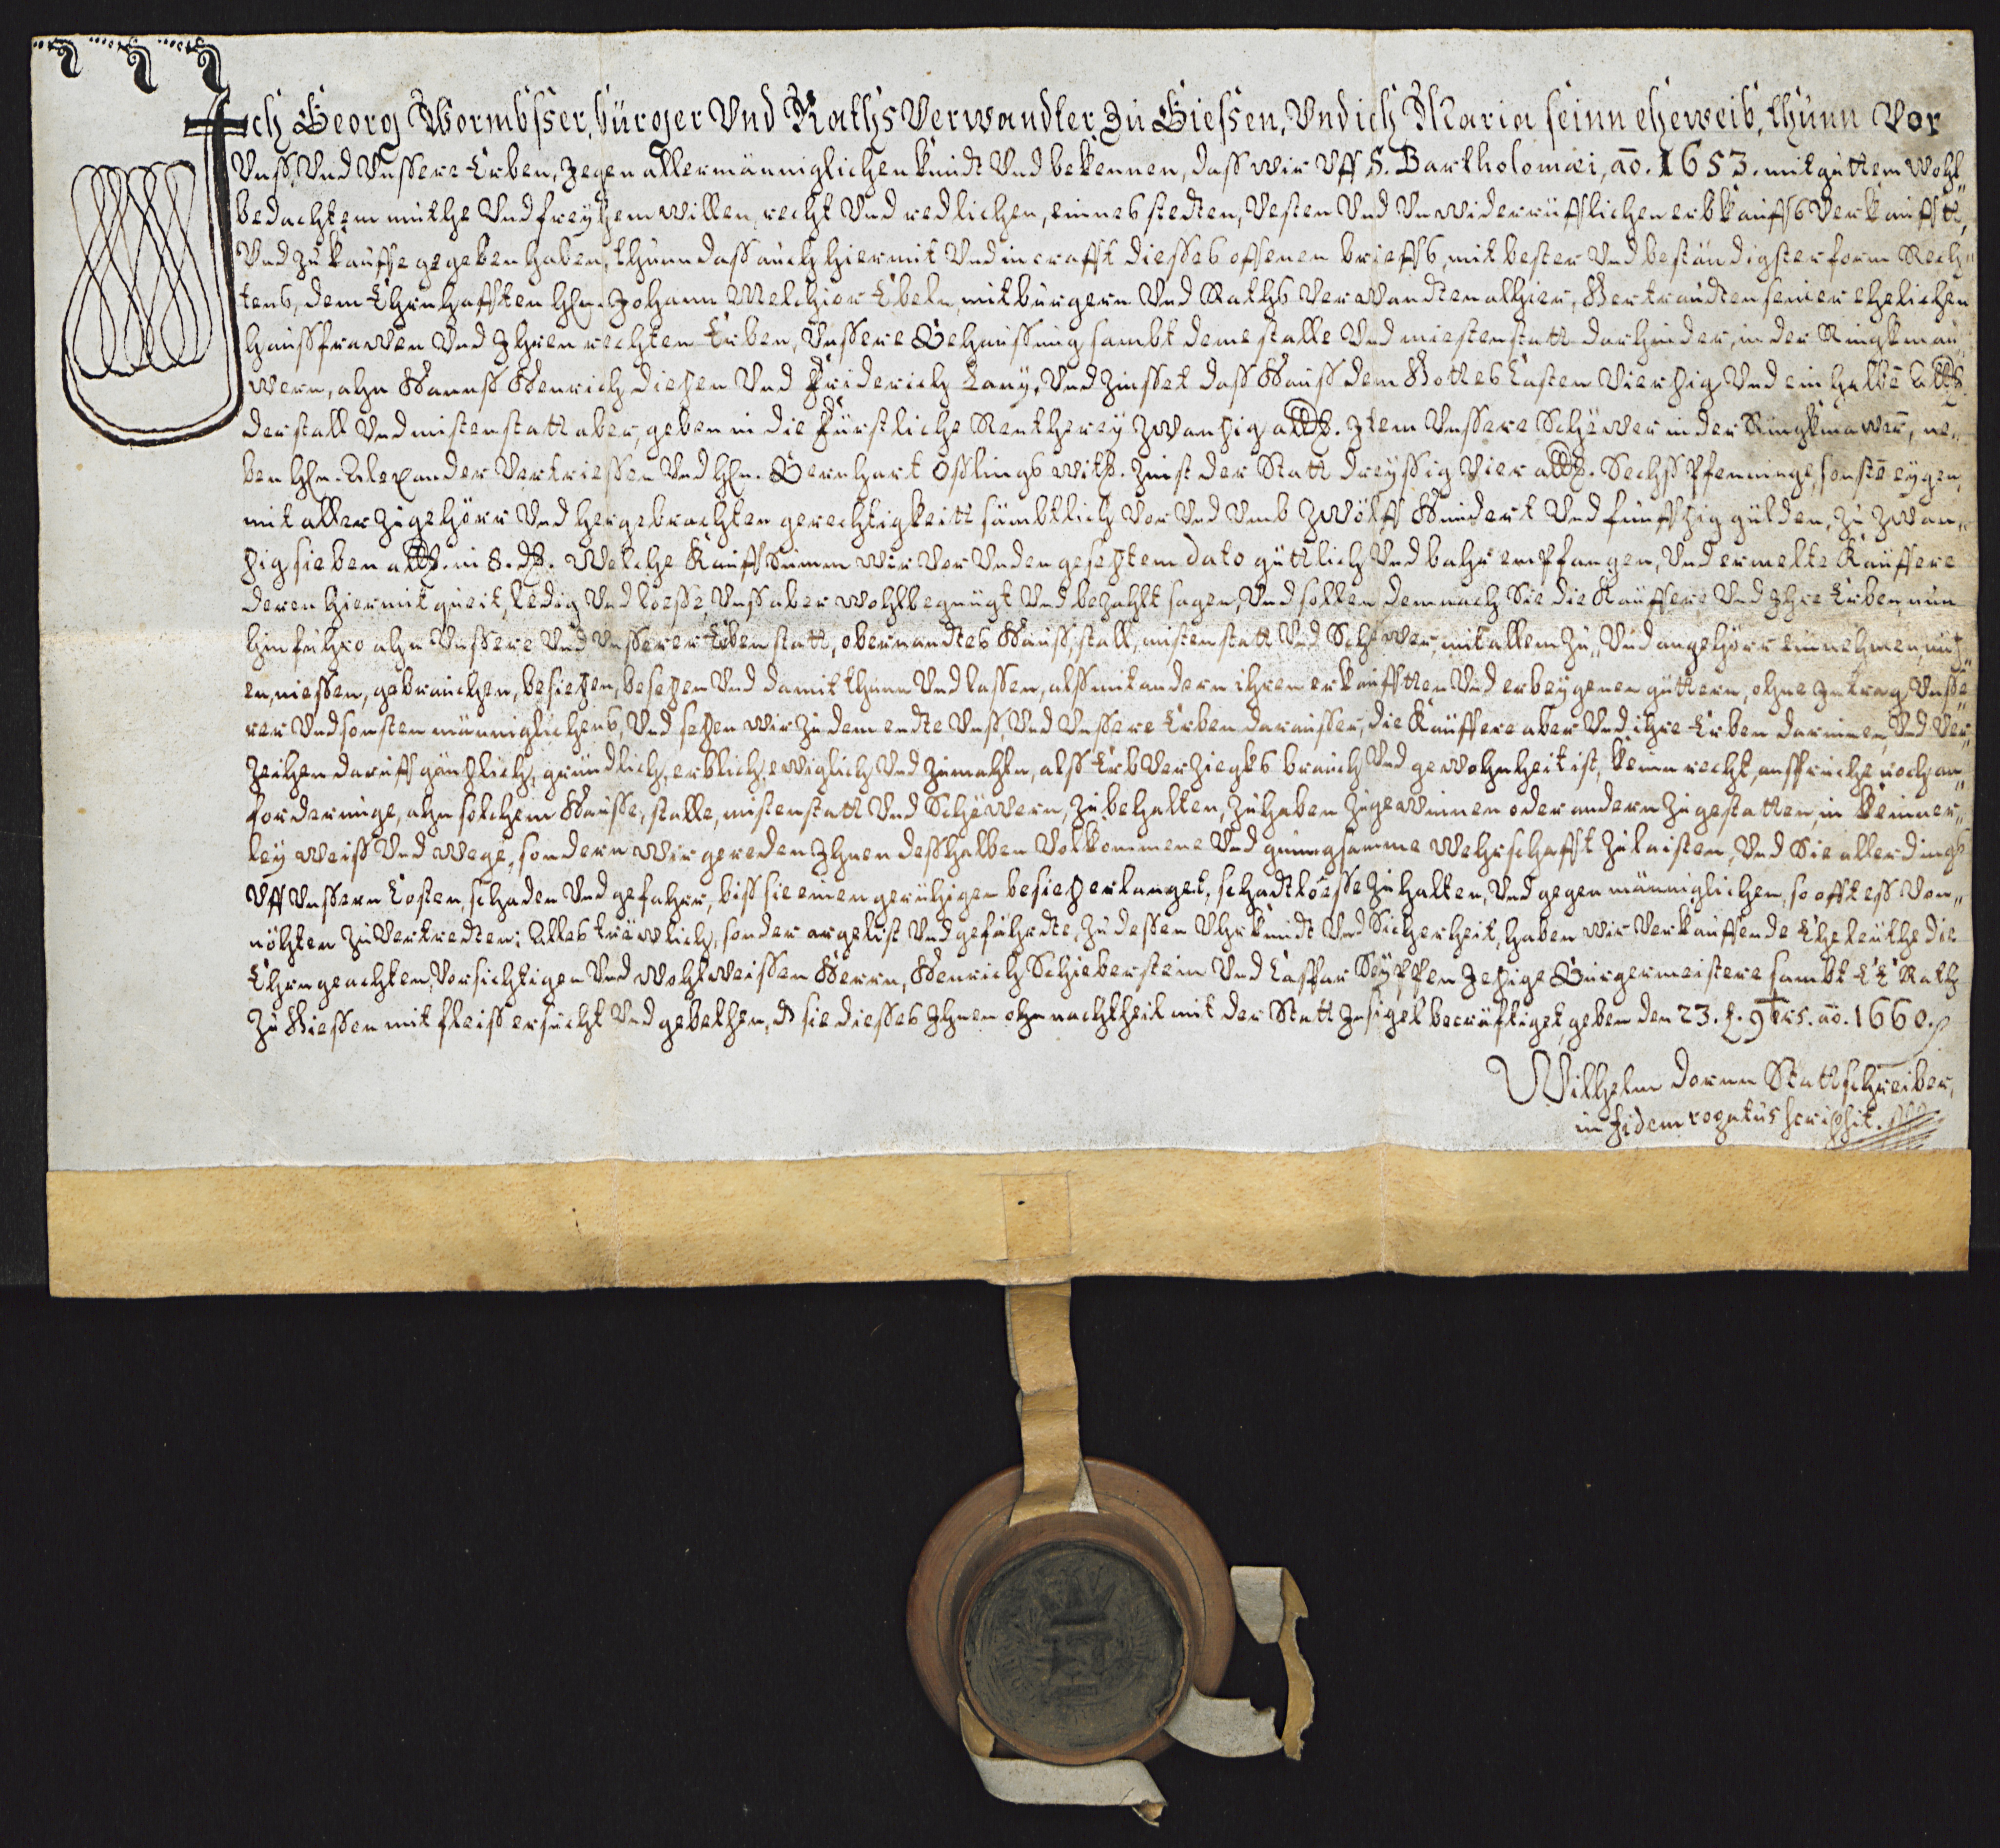 Ich Georg Wormbsser, bürger Vnd Raths Verwandter, zu Giessen, Vnd ich Maria seinn eheweib, thunn Vor
Vnss, Vnd Vnssere Erben, gegen allermänniglichen kundt Vnd bekennen, dass wir Vff S. Bartholomæi, ao. 1653. mit guttem wohl„
bedachtem muthe Vnd freyhem willen, recht Vnd redlichen, einnes stedten, Vesten Vnd Vnwiderrüfflichen erbkauffs Verkaufft,
Vnd zu kauffe gegeben haben, thunn dass auch hiermit Vnd in crafft diesses offenen brieffs, mit bester Vnd beständigster form Rech„
tens, dem Ehrnhafften Hln. Johann Melchior Ebeln, mitbürgern Vnd Raths Verwandten alhier, Gertraudten seiner ehelichen
haussfrawen Vnd Ihren rechten Erben, Vnssere Behaussung sambt deme stalle Vnd miestenstatt darhinder, in der Ringkmau„
wern, ahn Hannss Henrich Diehen Vnd Friderich Lany, Vnd zinsset dass Hauss dem Gottes Casten Vierzig Vnd ein halbē alb.
der stall Vnd mistenstatt aber, geben in die Fürstliche Rentherey zwanzig alb. Item Vnssere Schewer in der Ringkmawer, ne„
ben Hln. Alexander Vertriessen Vnd Hln. Bernhart Osslings witb. zinst der Statt dreyssig Vier alb. Sechss Pfenninge, sonstē eygen,
mit aller zugehörr Vnd hergebrachten gerechtigkeitt sämbtlich Vor Vnd Vmb zwölff Hundert Vnd funffzig gülden, zu zwan„
zig sieben alb. in 8. d. Welche Kauff Summ wir Vor Vnden gesetztem dato güttlich Vnd bahr empfangen, Vnd ermelte Käuffere
deren hiermit queit, ledig Vnd loesse, Vnss aber wohlbegnügt Vnd bezahlt sagen, Vnd sollen demnach Sie die Käuffere Vnd Ihre Erben, nun
hinfuhro ahn Vnssere Vnd Vnsserer Erben statt, obernandtes Hauss, stall, mistenstatt Vnd Schewer, mit allem zu„ Vnd angehörr einnehmen, nutz„
en, niessen, gebrauchen, besitzen, besetzen Vnd damit thunn Vnd lassen, alss mit andern ihren erkaufften Vnd erbeygenen güttern, ohne Intrag Vnsse„
rer Vnd sonsten männiglichens, Vnd setzen wir zu dem endte Vnss, Vnd Vnssere Erben darausser, die Käuffere aber Vnd ihre Erben darinnen, Vnd Ver„
zeihen daruff gäntzlich, gründlich, erblich, ewiglich Vnd zumahln, alss Erb Verziegks brauch Vnd gewohnheit ist, keinn recht, ansspruche noch an„
forderunge, ahn solchem Hausse, stalle, mistenstatt Vnd Schewern, zu behalten, zu haben zu gewinnen oder andern zu gestatten, in keiner„
ley weiss Vnd wege, sondern wir gereden Ihnen desshalben Volkommene Vnd gnungsamme Wehrschafft zu laisten, Vnd Sie allerdings
Vff Vnssern Costen, schaden Vnd gefahrr, biss sie einen gerühigen besitz erlanget, schadtloesse zu halten, Vnd gegen männiglichen, so offt ess Von„
nöhten zu Vertredten; Alles trewlich, sonder argelist Vnd gefährdte, Zu dessen Vhrkundt Vnd Sicherheit, haben wir Verkauffende Eheleuthe die
Ehrngeachten, Vorsichtigen Vnd wohlweissen Herrn, Henrich Schieberstein Vnd Caspar Seypffen Jetzige Bürgermeistere sambt E. E. Rath
zu Giessen mit fleiss ersucht Vnd gebethen, ds sie diesses Ihnen ohnnachtheil mit der Statt Insigel becräfftiget, geben den 23. t. 9brs. ao. 1660.
Wilhelm Dornn Stattschreiber,
in fidem rogatus scripsit.